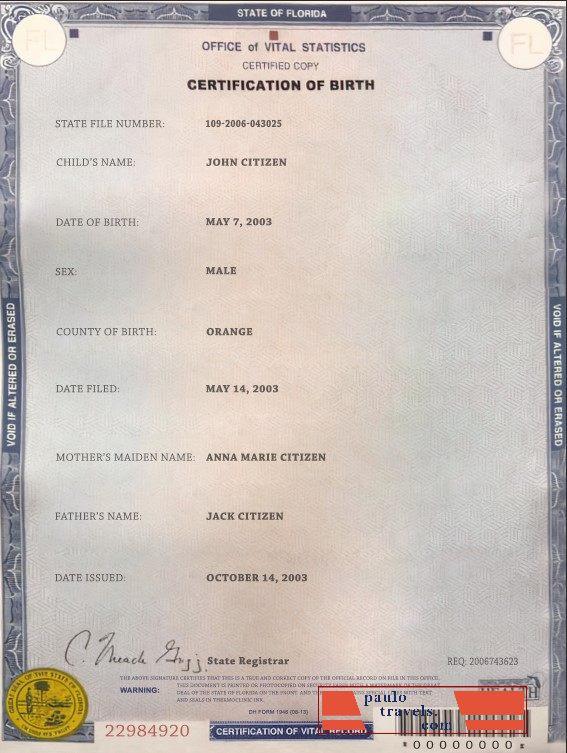 STATE OF FLORIDA
FL
FL
OFFICE of VITAL STATISTICS
CERTIFIED COPY
CERTIFICATION OF BIRTH
STATE FILE NUMBER: 109-2006-043025
CHILD'S NAME: JOHN CITIZEN
DATE OF BIRTH: MAY 7, 2003
SEX: MALE
COUNTY OF BIRTH: ORANGE
VOID IF ALTERED OR ERASED
VOID IF ALTERED OR ERASED
DATE FILED: MAY 14, 2003
MOTHER'S MAIDEN NAME: ANNA MARIE CITIZEN
FATHER'S NAME: JACK CITIZEN
DATE ISSUED: OCTOBER 14, 2003
State Registrar
REQ: 2006743623
THE ABOVE SIGNATURE CERTIFIES THAT THIS IS A TRUE AND CORRECT COPY OF THE OFFICIAL RECORD ON FILE IN THIS OFFICE.
WARNING: THIS DOCUMENT IS PRINTED OR PHOTOCOPIED ON SECURITY PAPER WITH A WATERMARK OF THE GREAT
SEAL OF THE STATE OF FLORIDA ON THE FRONT
AND SEALS IN THERMOCLINIC INK.
DH FORM 1946 (08-13)
22984920
CERTIFICATION OF VITAL RECORD
HEALTH
paulo
travels
.com
*00000000*